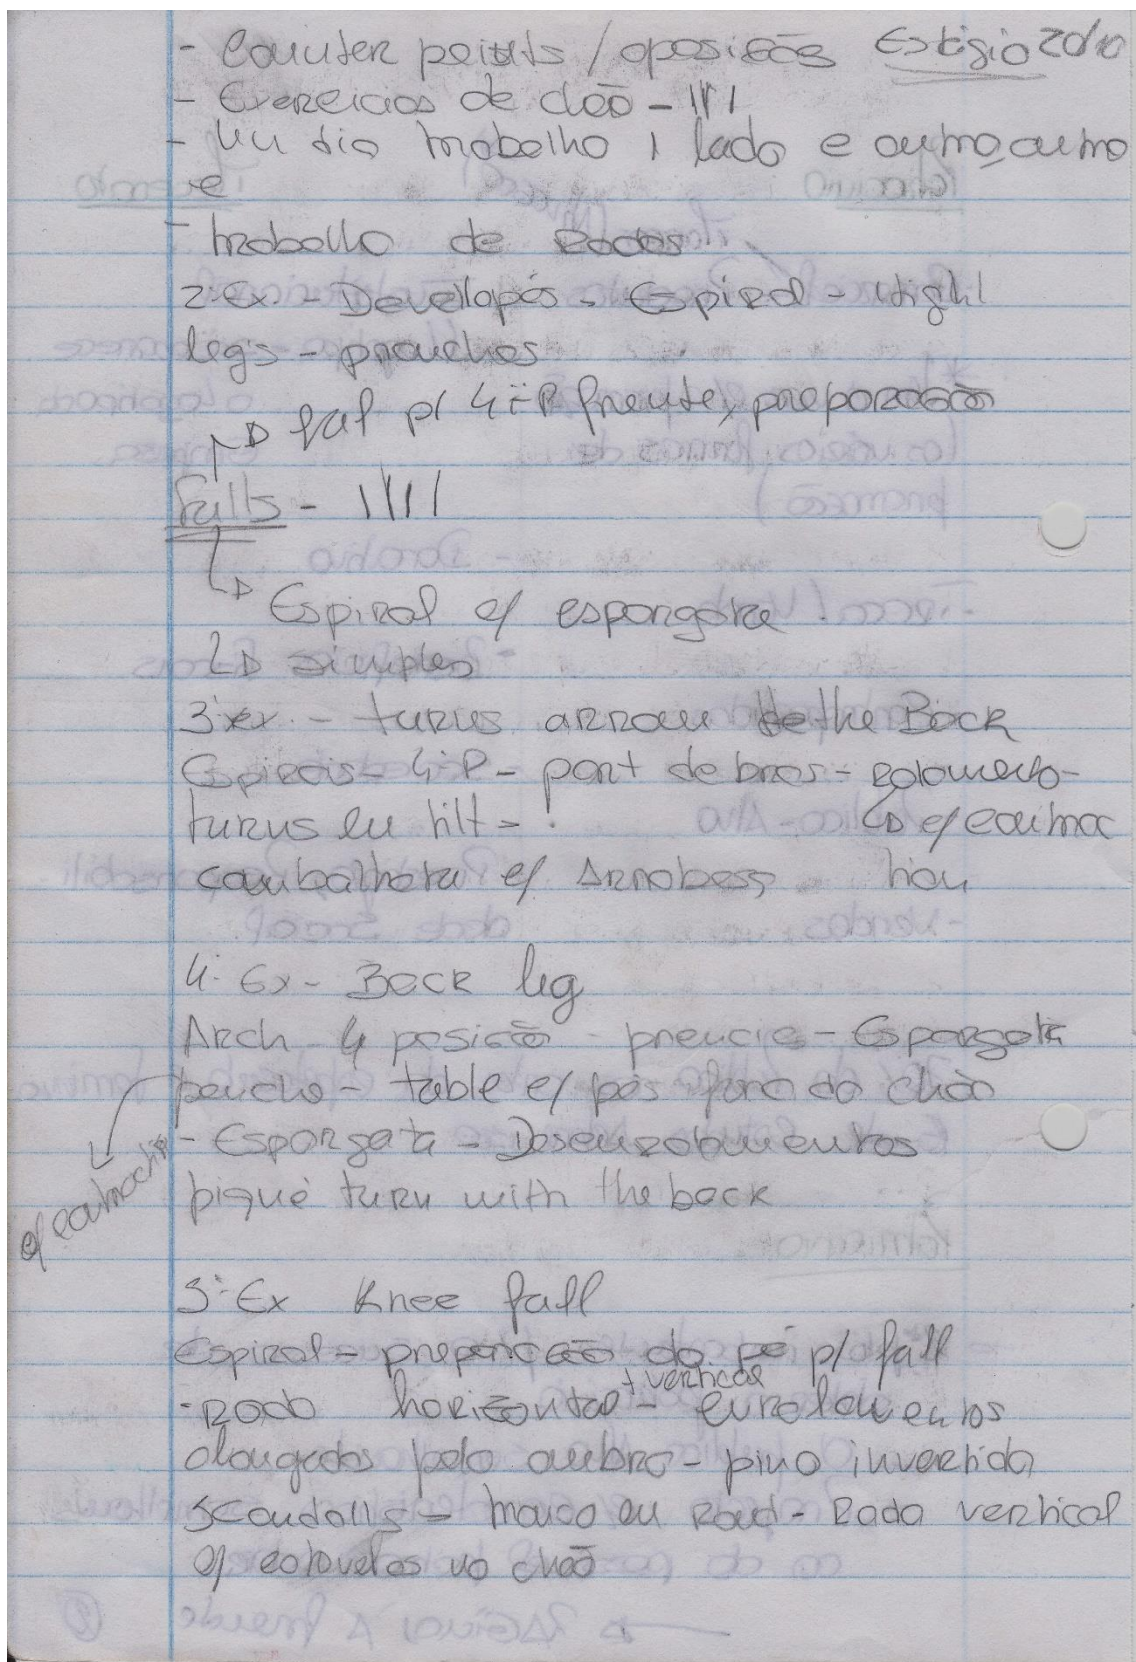 - Counter points / oposições Estágio 2010
- Exercícios de chão - 1111
- Um dia trabalho 1 lado e outro, outro
e
- trabalho de Rodas
2º Ex. - Devellopés - Espiral - Hight
legs - pranchas
→ fall p/ 4ª P frente, preparação
Falls - 1111
→ Espiral c/ espargata
→ simples
3º ex. - turns arrou the the Back
Espirais - 4ª P - port de bras - rolamento -
turns em tilt - ! → c/ contrac
cambalhota c/ Arabess tion
4º Ex - Back leg
Arch - 4 posição - prancia - Espargata
penche - table c/ pés fora do chão
- Espargata - Desenrolamentos
piqué turn with the back
c/ contraction
5º Ex Knee fall
Espiral - preparação do pé p/ fall
- Roda horizontal + vertical - enrolamentos
alongados pelo ombro - pino invertida
Scandalls - marco ou Rond - Roda vertical
c/ cotovelos no chão